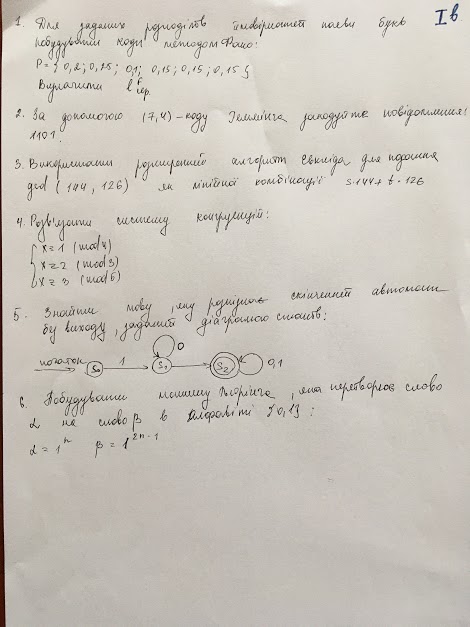 Iв
1. Для заданих розподілів ймовірностей появи букв
побудувати коди методом Фано:
P = { 0,2; 0,25; 0,1; 0,15; 0,15; 0,15 }
Визначити l F сер.
2. За допомогою (7,4)-коду Геммінга закодуйте повідомлення:
1101.
3. Використати розширений алгоритм Евкліда для подання
gcd (144, 126) як лінійної комбінації s·144 + t·126
4. Розв'язати систему конгруенцій:
x ≡ 1 (mod 4)
x ≡ 2 (mod 3)
x ≡ 3 (mod 5)
5. Знайти мову, яку розпізнає скінченний автомат
без виходу, заданий діаграмою станів:
0
початок S0 1 S1 S2 0,1
6. Побудувати машину Тьюрінга, яка перетворює слово
α на слово β в алфавіті {0,1}:
α = 1^n β = 1^{2n-1}